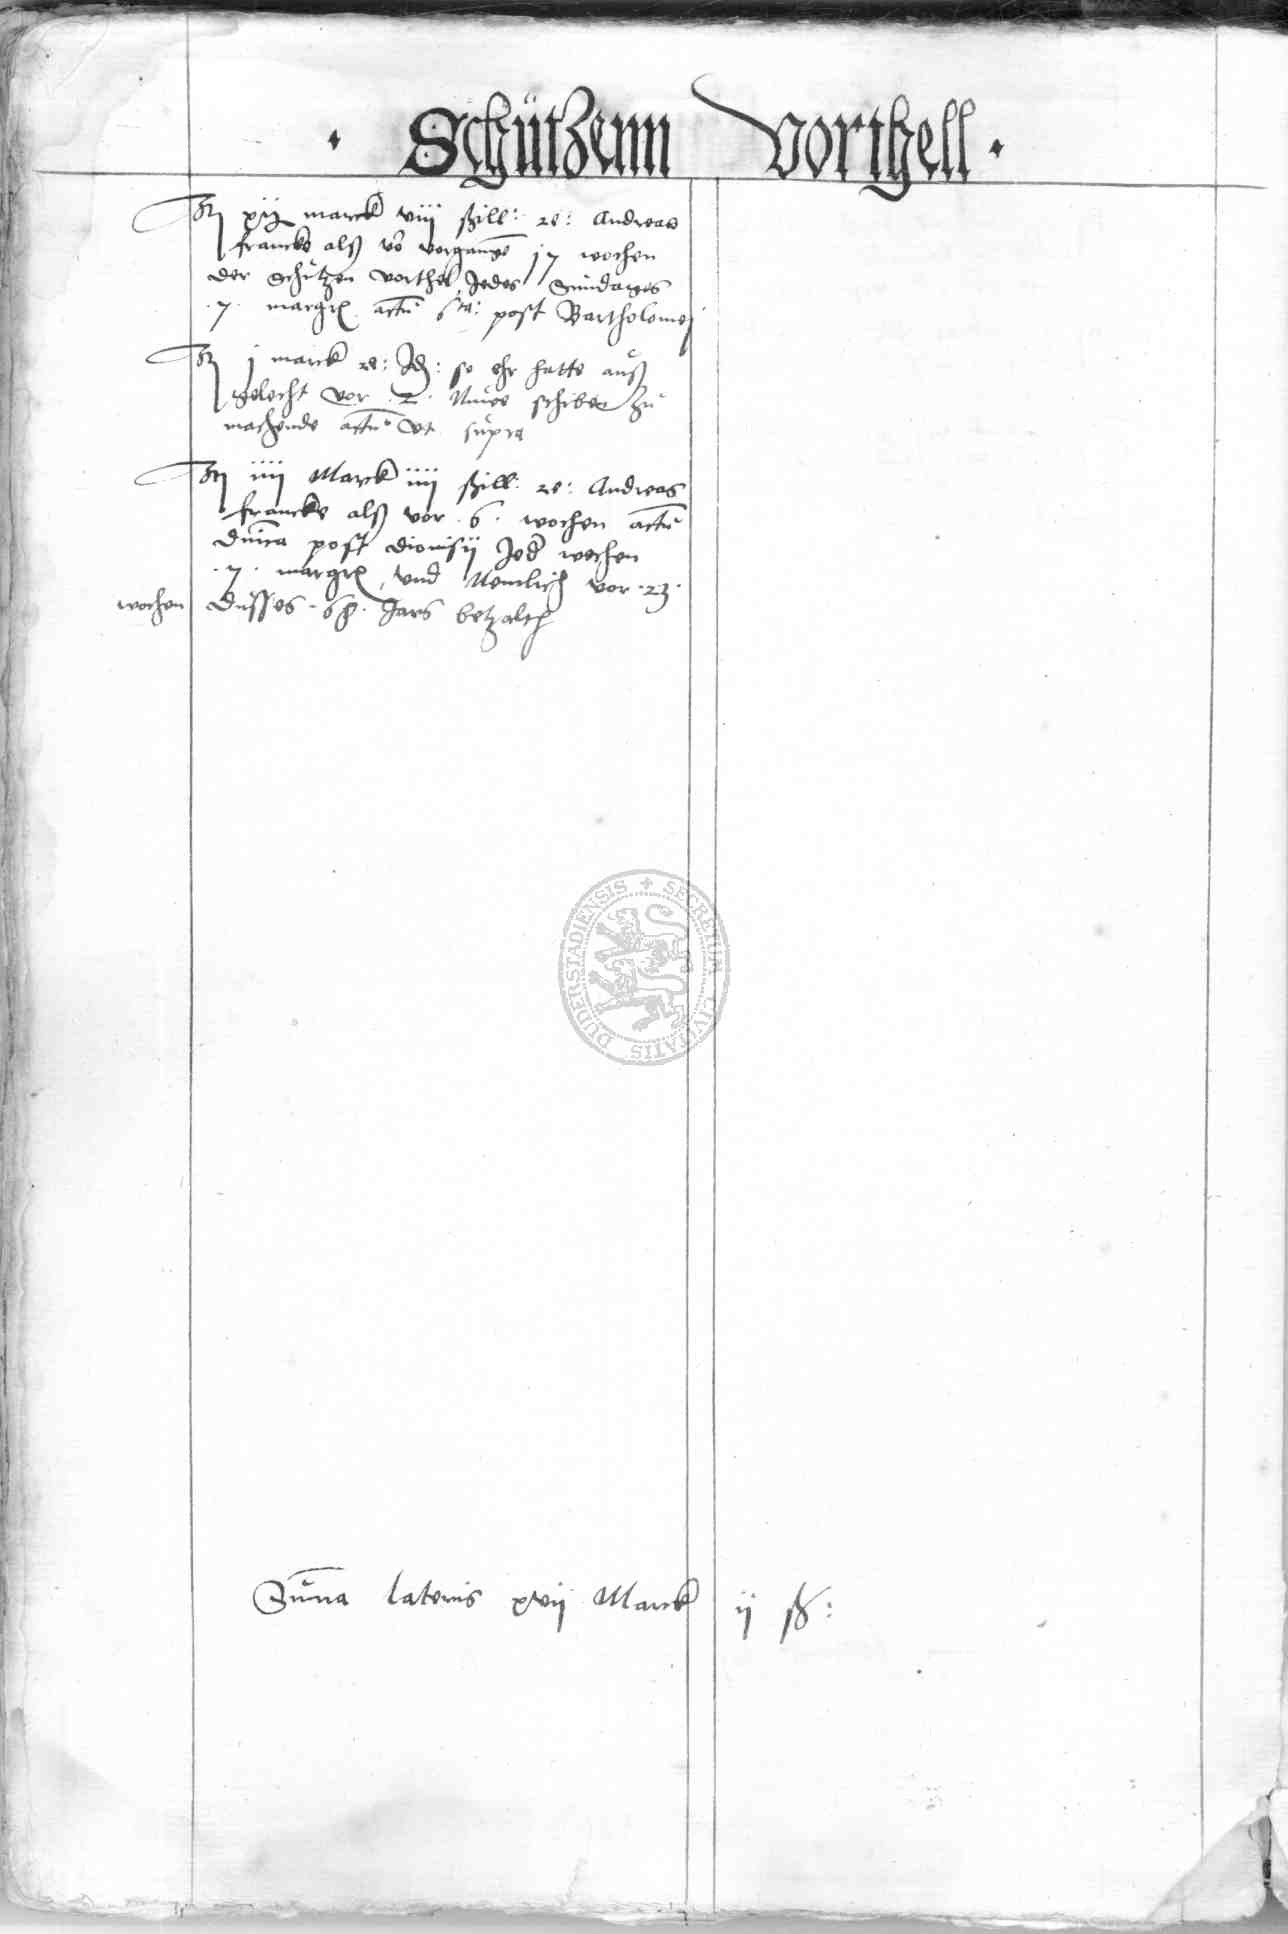 · Schützenn Vorthell ·
xij marck viij ßill: re: Andreas
francke alß vor vorgangē 17 wochen
der Schützen vorthel Jedes Sündages
·7· margr actū 6ta: post Bartholomej
j marck re: Id: so ehr hatte auß
gelecht vor ·2· Nüwe schiben zu
machende actū vt süpra
iiij Marck iiij ßill: re: Andreas
francke alß vor ·6· wochen actū
dnica post dionisij Jed wochen
·7· margr vnd Nemlich vor ·23·
wochen düsses ·68· Jars betzalth
Süma lateris xvij Marck ij ß:
SECRETUM CIVITATIS DUDERSTADIENSIS